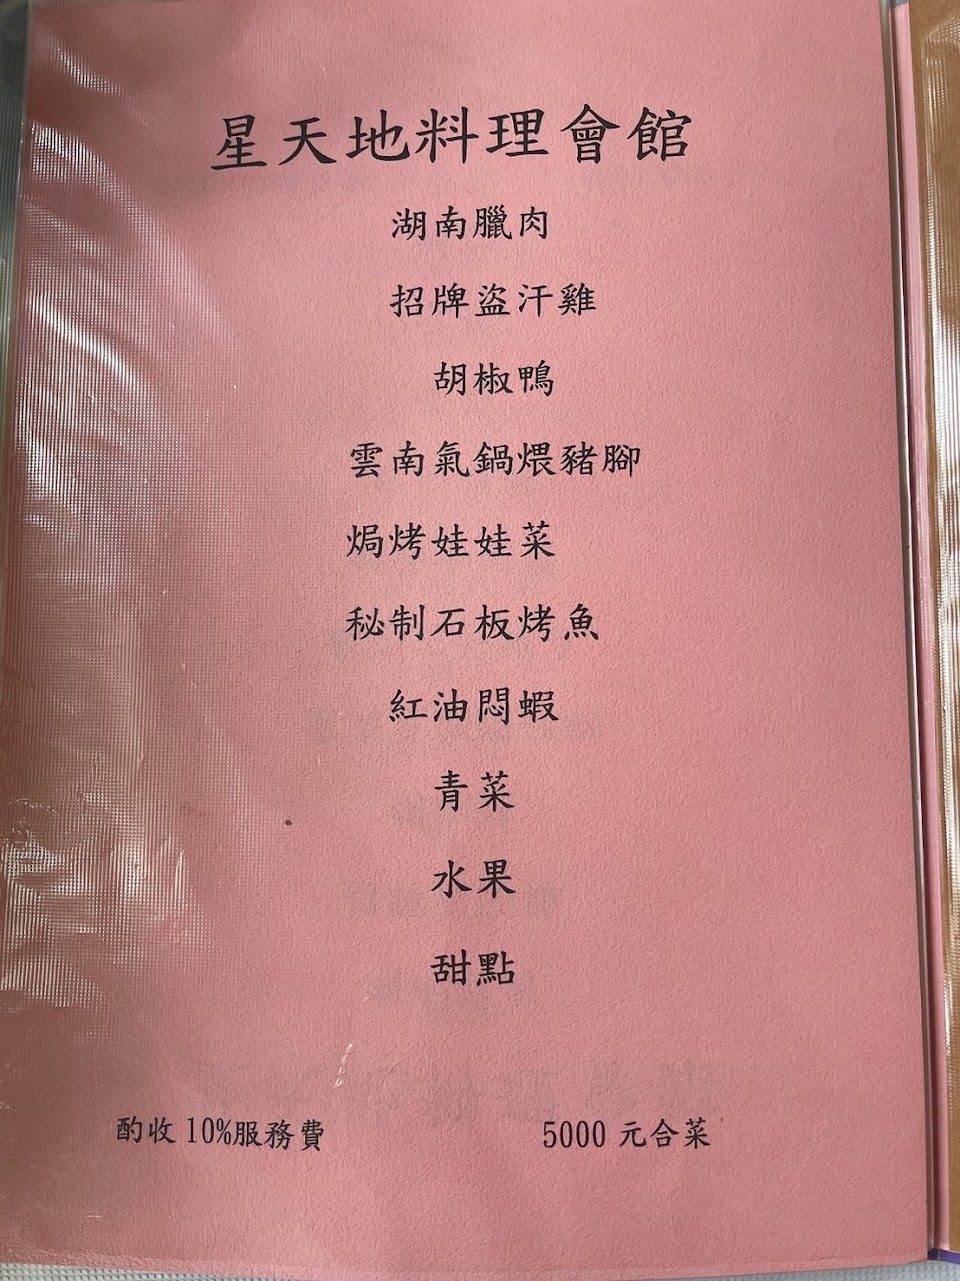 星天地料理會館
湖南臘肉
招牌盜汗雞
胡椒鴨
雲南氣鍋煨豬腳
焗烤娃娃菜
秘制石板烤魚
紅油悶蝦
青菜
水果
甜點
酌收 10%服務費
5000 元合菜